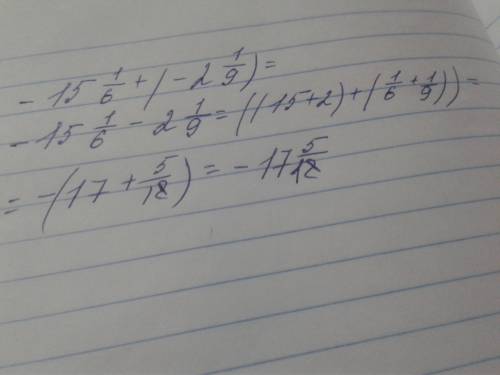 - 15 1/6 + (- 2 1/9) =
- 15 1/6 - 2 1/9 = ((15+2) + (1/6 + 1/9)) =
= -(17 + 5/18) = - 17 5/18